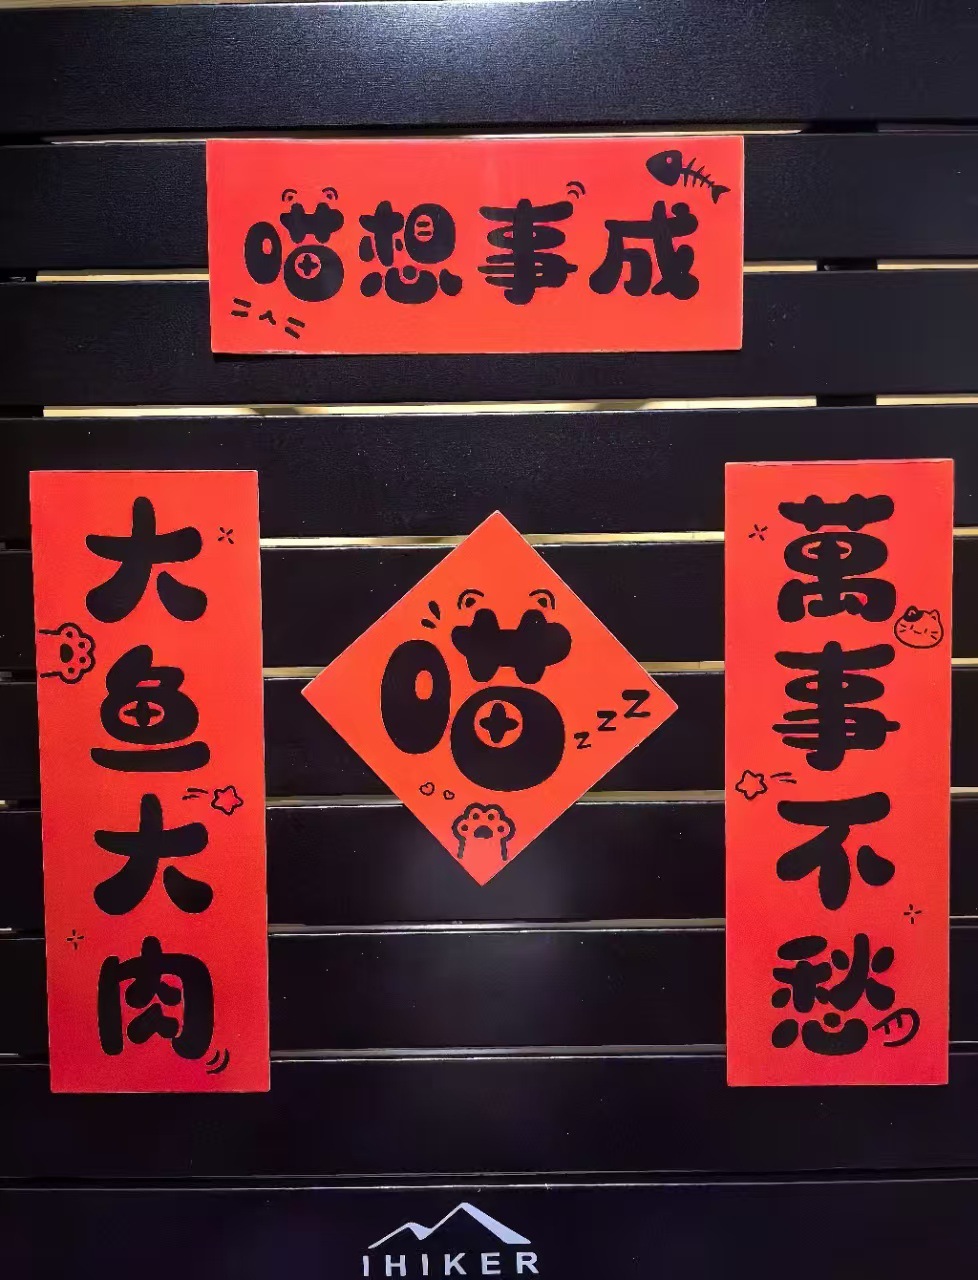 喵想事成
萬事不愁
大鱼大肉
喵
zzZ
IHIKER